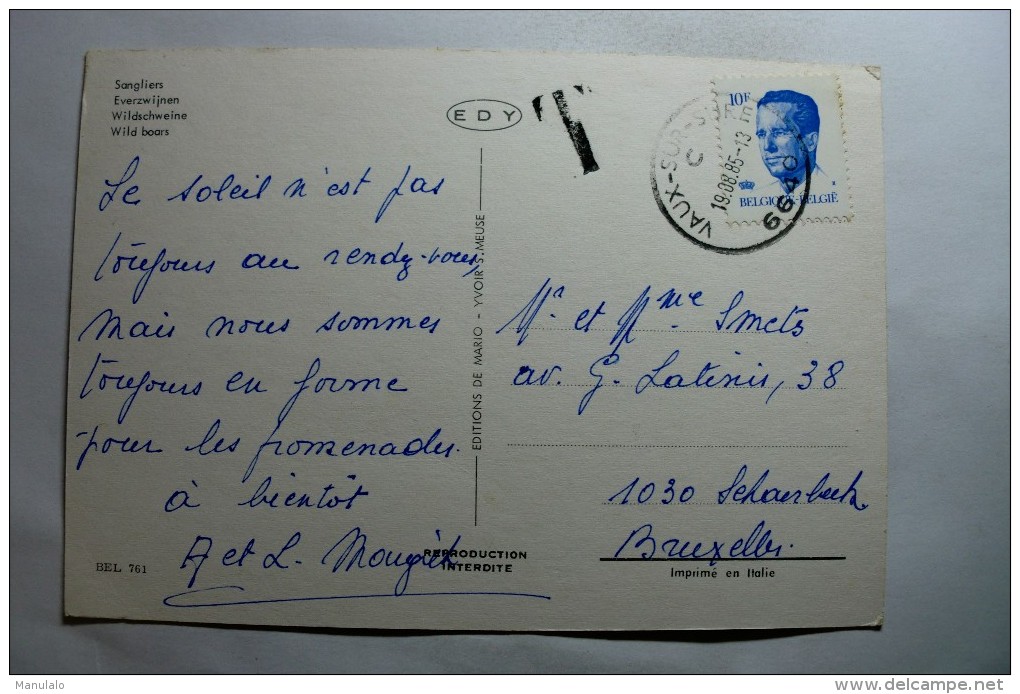 Sangliers
Everzwijnen
Wildschweine
Wild boars
EDY
T
VAUX-SUR-SÛRE
C
19.08.85-13
6640
10F
BELGIQUE-BELGIË
Le soleil n'est pas
toujours au rendez-vous,
mais nous sommes
toujours en forme
pour les promenades.
à bientôt
A et L.
EDITIONS DE MARIO - YVOIR S/MEUSE
Mr et Mme Smets
av. G. Latinis, 38
1030 Schaerbeek
Bruxelles.
REPRODUCTION
INTERDITE
BEL 761
Imprimé en Italie
Manulalo
delcampe.net